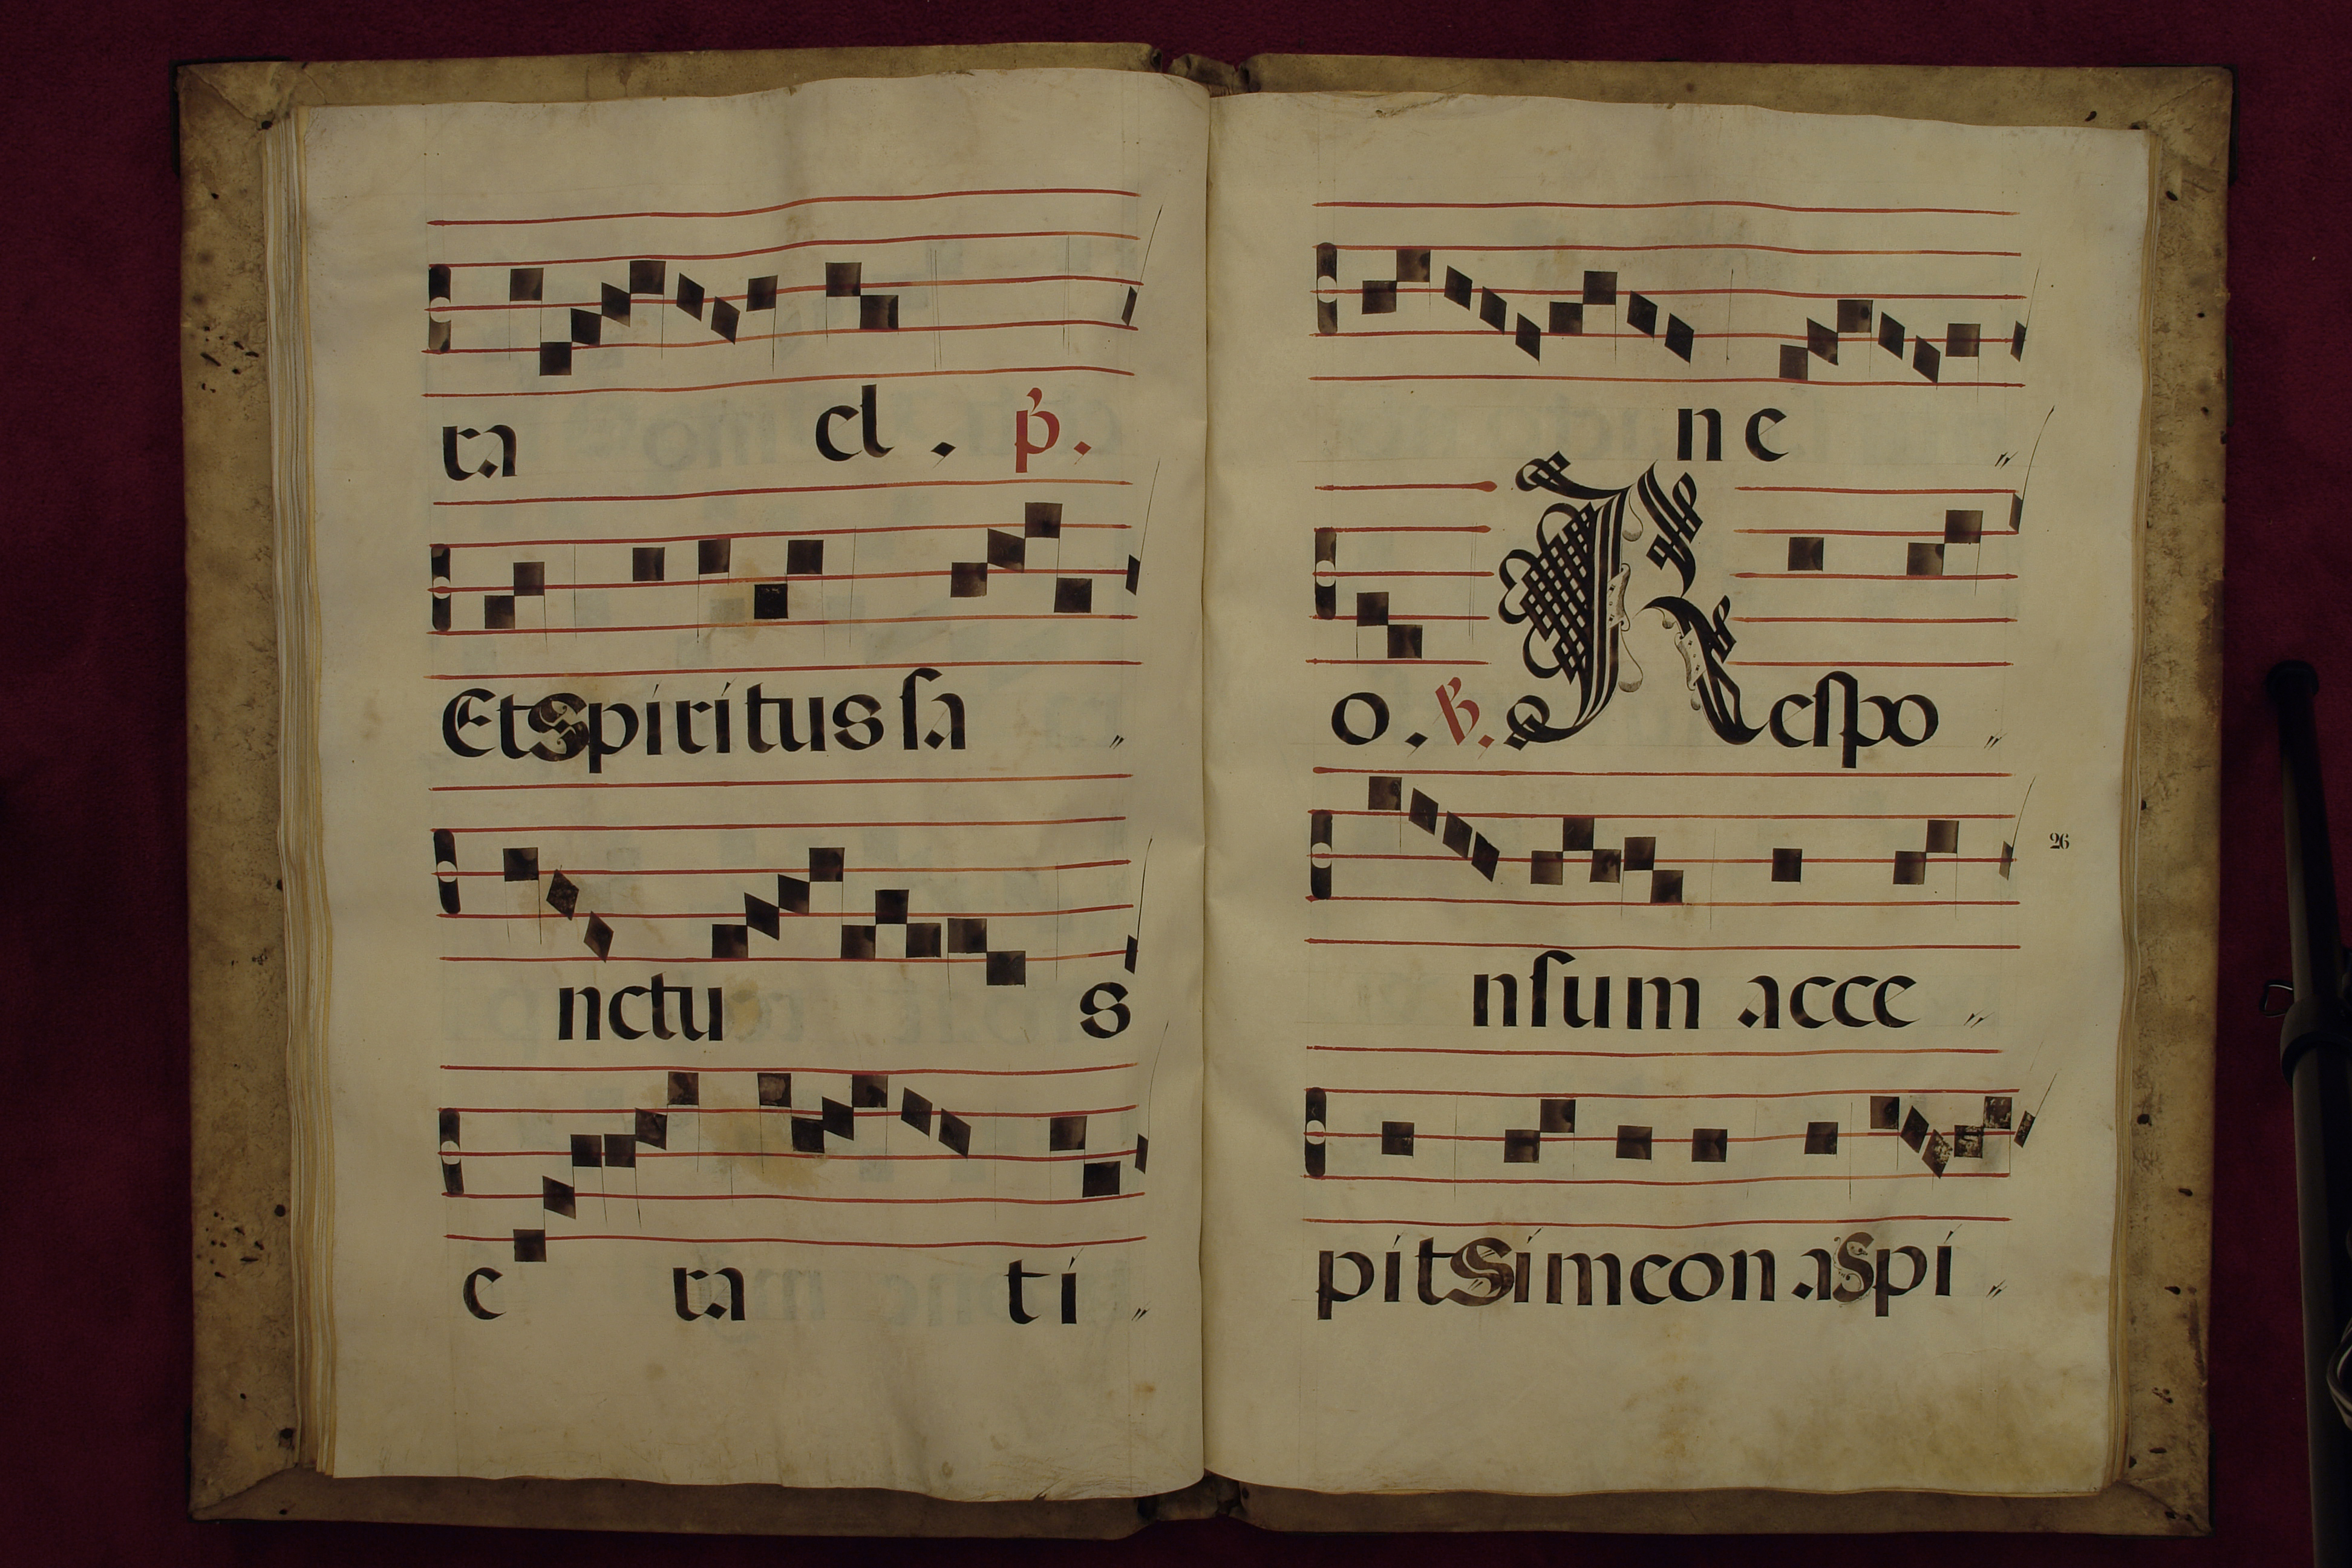 ra el . p.
Et spiritus sa
nctu s
e ra ti
ne
o . R. Respo
nsum acce
26
pit Simeon a Spi